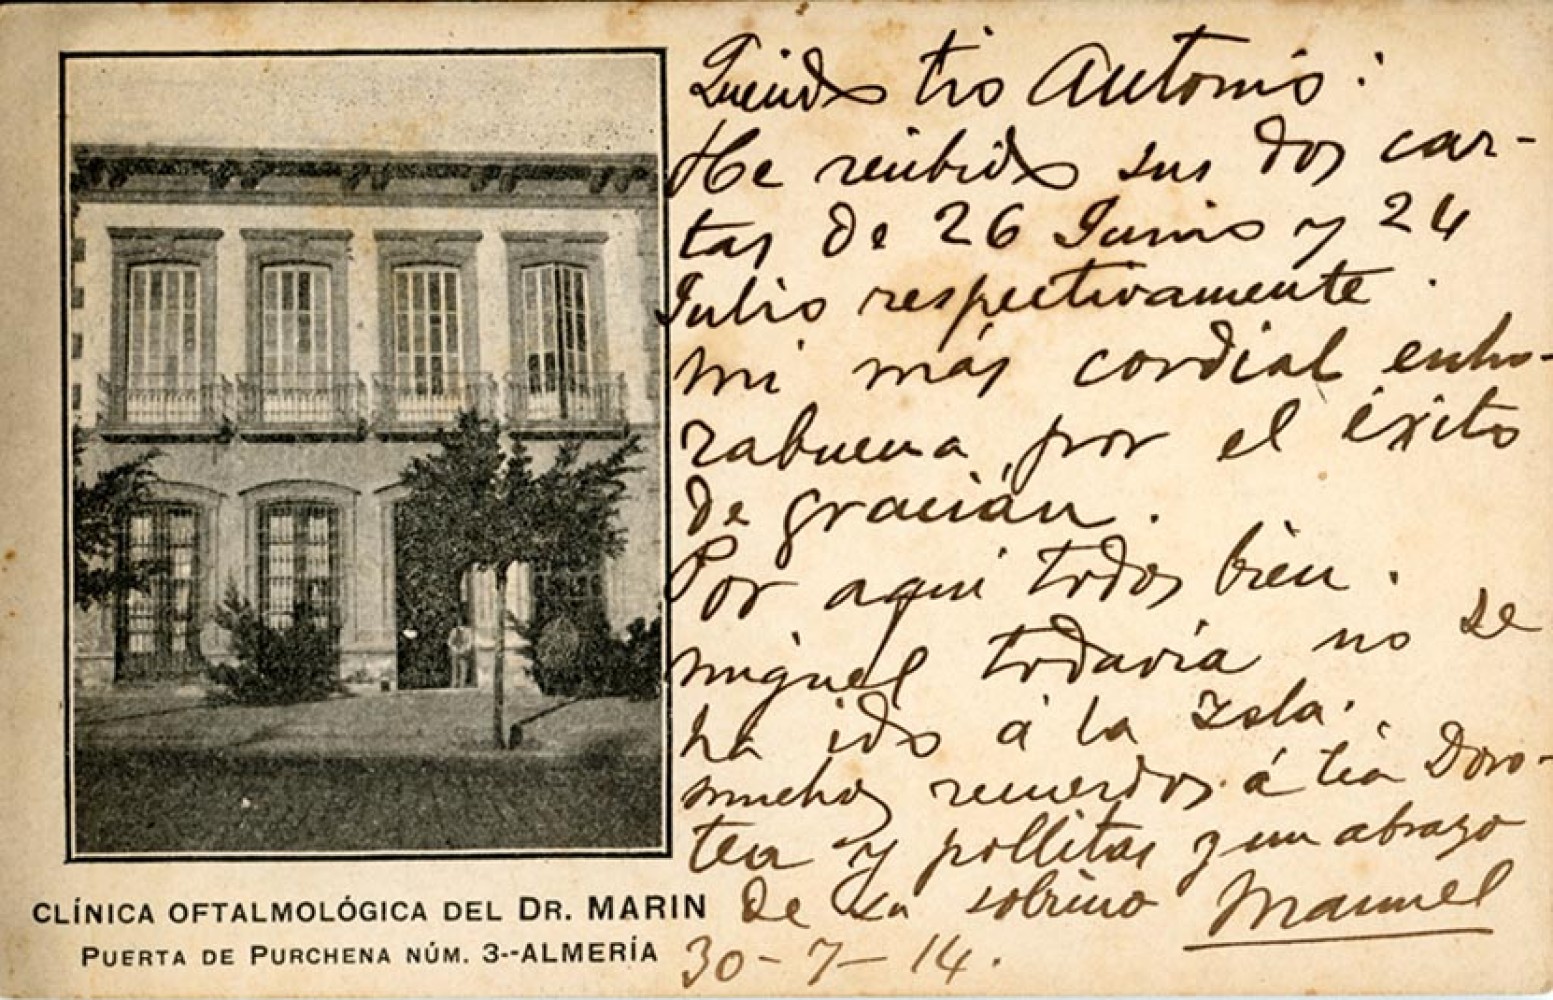 Querido tio Antonio:
He recibido sus dos car-
tas de 26 Junio y 24
Julio respectivamente.
mi más cordial enho-
rabuena por el éxito
de gracián.
Por aqui todos bien.
miguel todavía no se
ha ido á la Isla.
muchos recuerdos á tia Doro-
tea y pollitas y un abrazo
de su sobrino Manuel
30-7-14.
CLÍNICA OFTALMOLÓGICA DEL DR. MARIN
PUERTA DE PURCHENA NÚM. 3--ALMERÍA